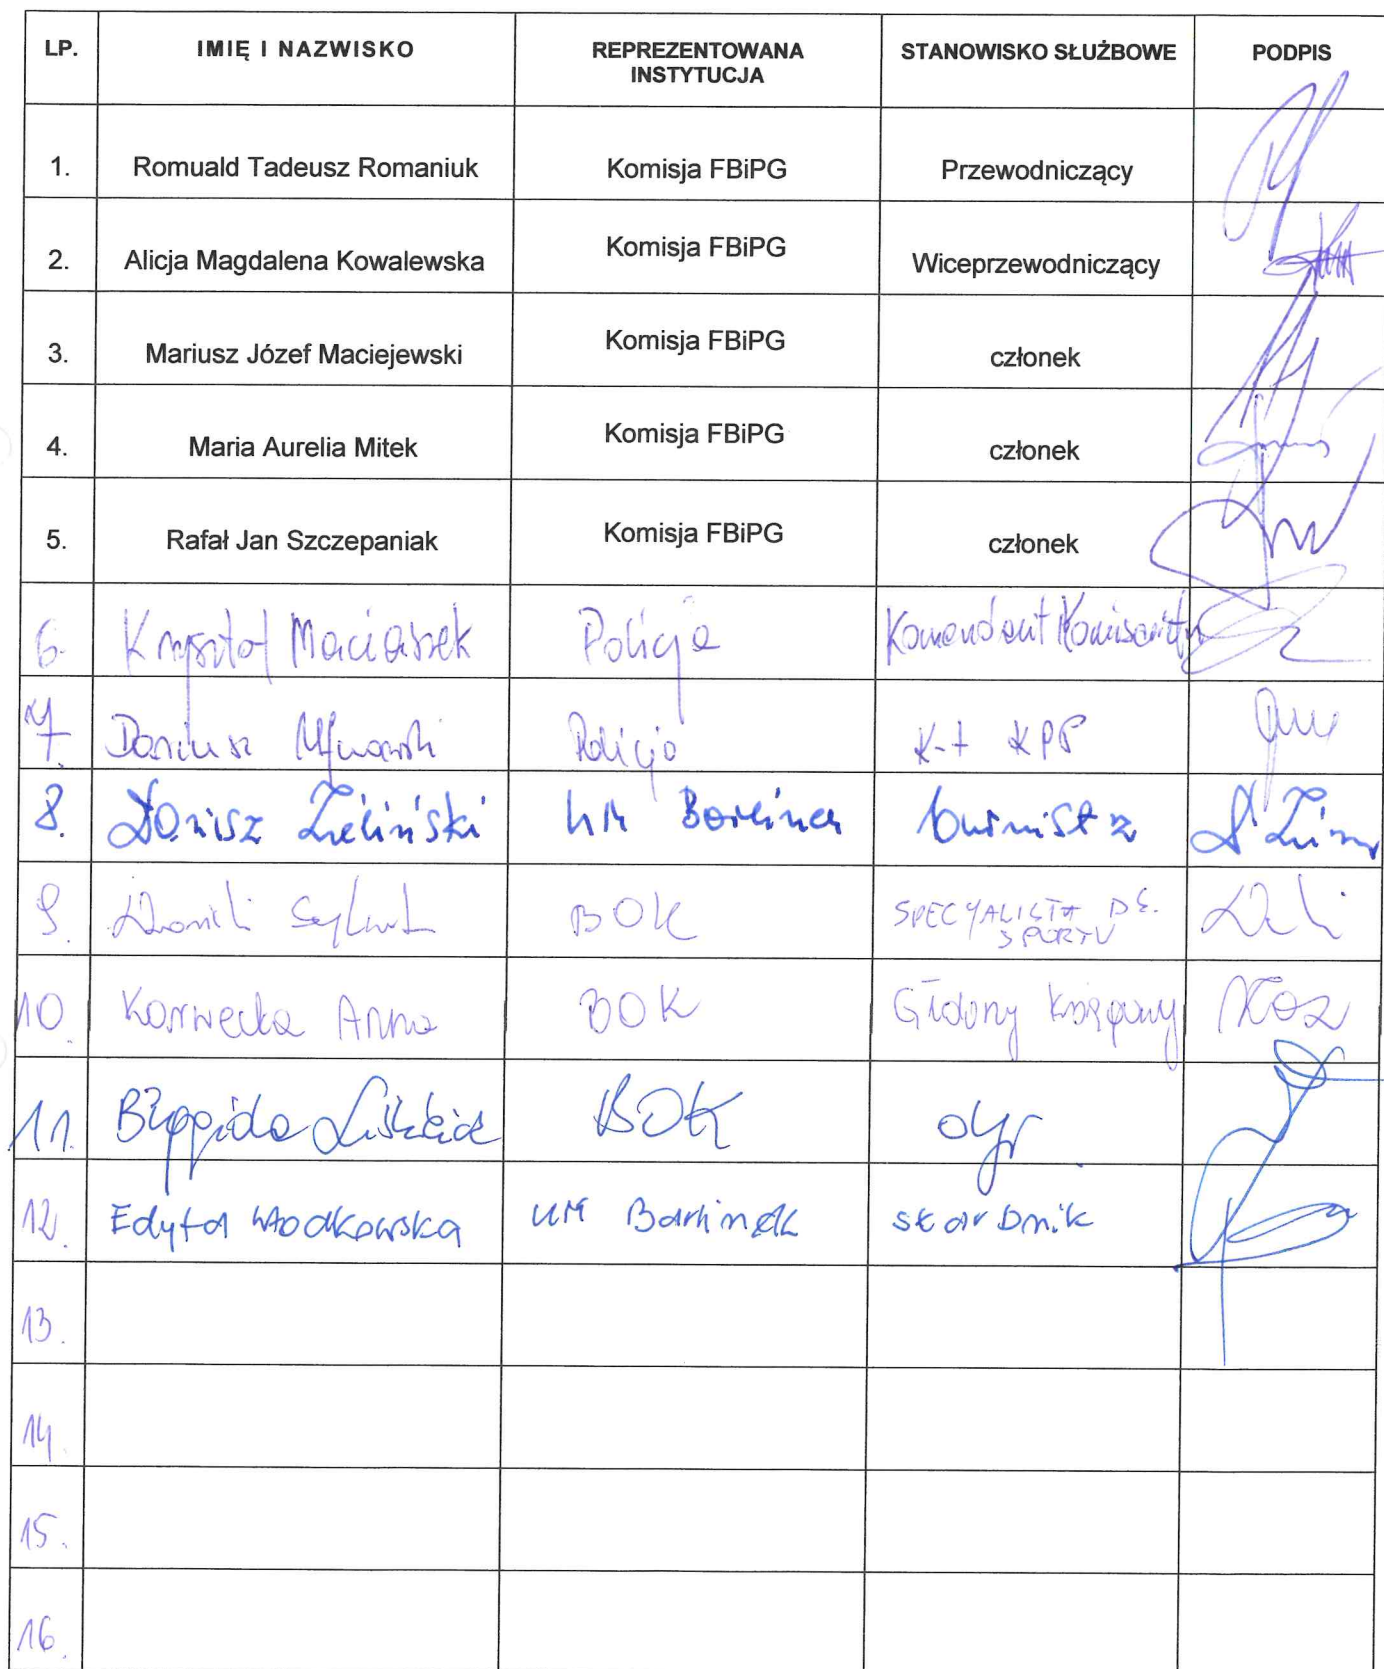 LP. IMIĘ I NAZWISKO REPREZENTOWANA INSTYTUCJA STANOWISKO SŁUŻBOWE PODPIS
1. Romuald Tadeusz Romaniuk Komisja FBiPG Przewodniczący
2. Alicja Magdalena Kowalewska Komisja FBiPG Wiceprzewodniczący
3. Mariusz Józef Maciejewski Komisja FBiPG członek
4. Maria Aurelia Mitek Komisja FBiPG członek
5. Rafał Jan Szczepaniak Komisja FBiPG członek
6. Krzysztof Maciaszek Policja Komendant Komisariatu
7. Dariusz Policja K-t KPP
8. Dariusz Zieliński UM Barlinek burmistrz
9. BOK SPECYALISTA DS. SPORTU
10. Anna BOK Główny księgowy
11. BOK dyr
12. Edyta Włodkowska UM Barlinek skarbnik
13.
14.
15.
16.